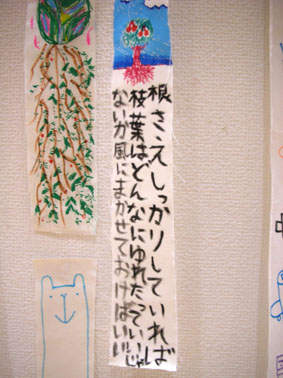 根さえしっかりしていれば
枝葉はどんなにゆれたっていいじゃ
ないか風にまかせておけばいい